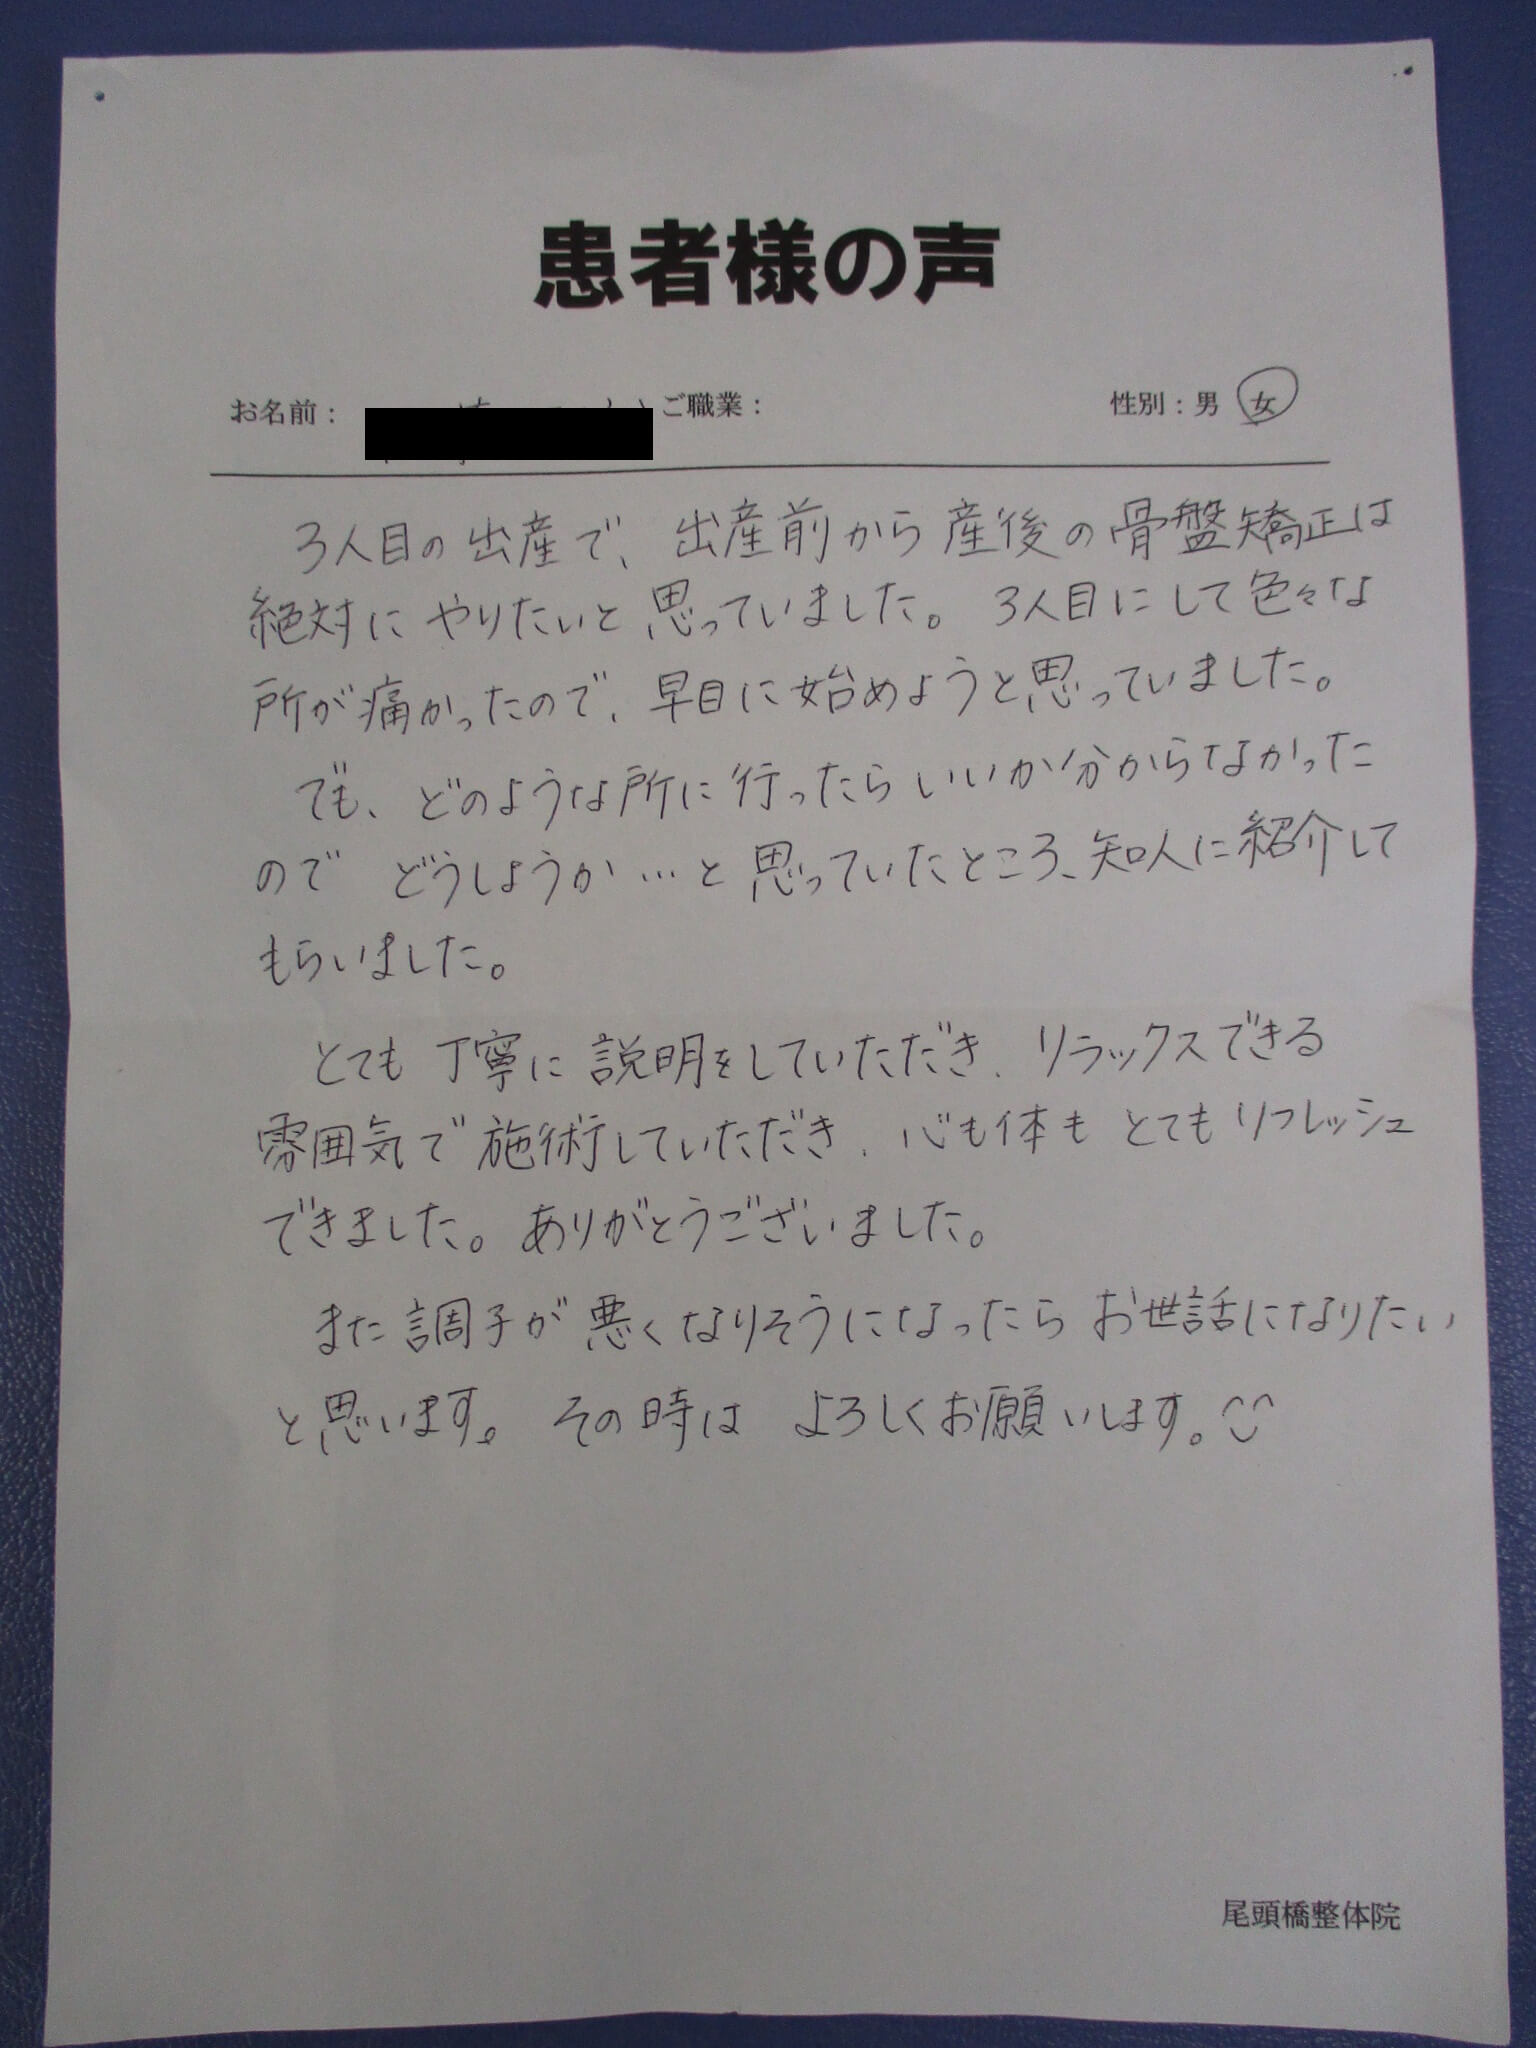 患者様の声
お名前： ご職業： 性別：男 女
3人目の出産で、出産前から産後の骨盤矯正は
絶対にやりたいと思っていました。3人目にして色々な
所が痛かったので、早目に始めようと思っていました。
でも、どのような所に行ったらいいか分からなかった
ので どうしようか…と思っていたところ、知人に紹介して
もらいました。
とても丁寧に説明をしていただき、リラックスできる
雰囲気で施術していただき、心も体もとてもリフレッシュ
できました。ありがとうございました。
また調子が悪くなりそうになったらお世話になりたい
と思います。その時は よろしくお願いします。
尾頭橋整体院